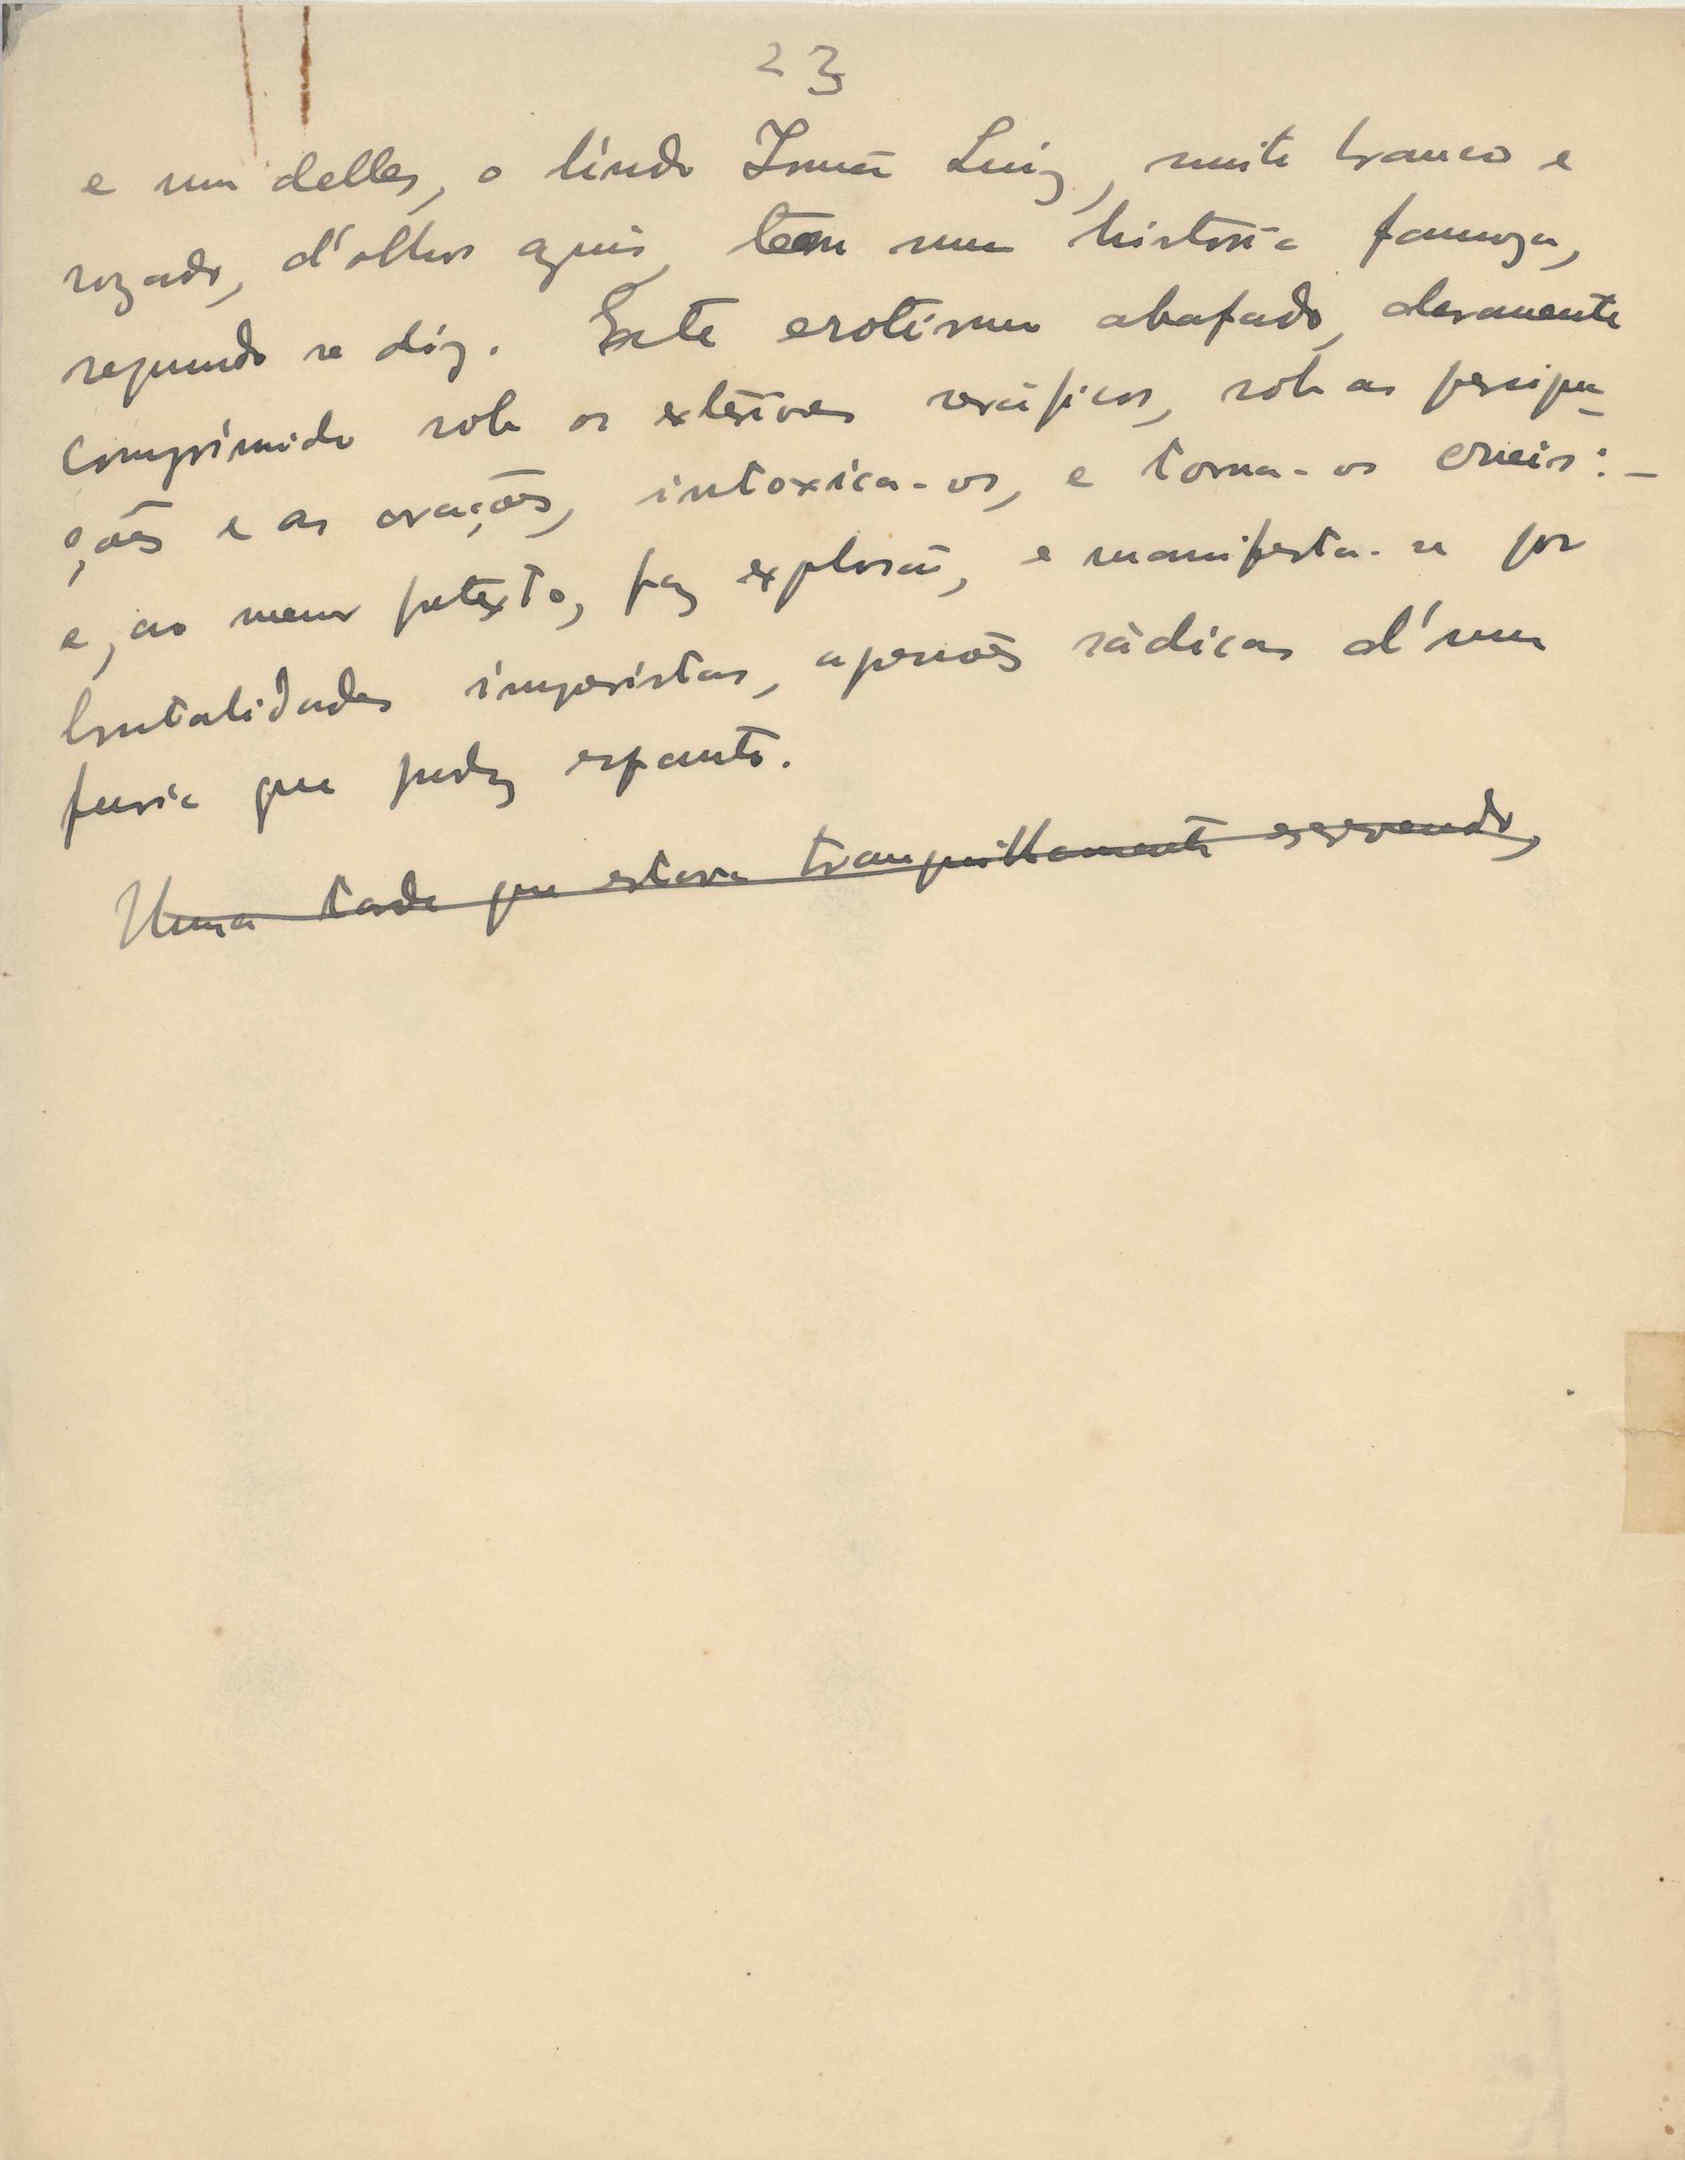 23
e um delles, o lindo Irmão Luiz, muito branco e
rozado, d'olhos azuis, tem uma historia famoza,
segundo se diz. Este erotismo abafado, duramente
comprimido sob os exteriores seráficos, sob as persigna-
ções e as orações, intoxica-os, e torna-os crueis: -
e, ao menor pretexto, faz explosão, e manifesta-se por
brutalidades imprevistas, agressões sádicas d'uma
furia que produz espanto.
Uma tarde que estava tranquillamente escrevendo,